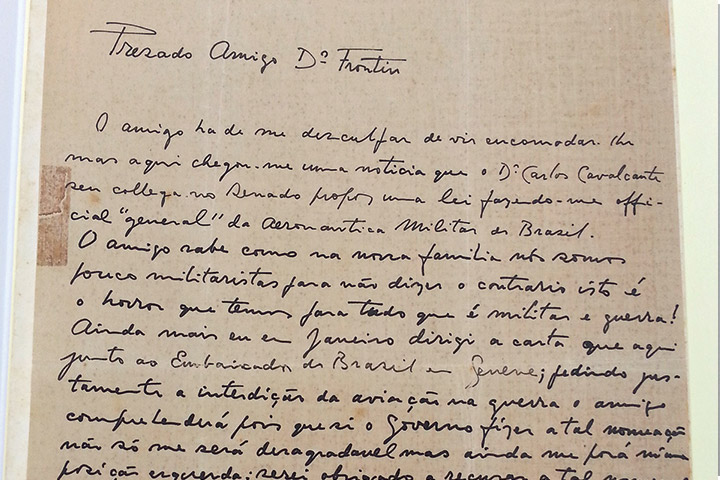 Prezado Amigo Dr Frontin
O amigo ha de me desculpar de vir encomodar-lhe
mas aqui chegou-me uma noticia que o Dr Carlos Cavalcante
seu collega no Senado propos uma lei fazendo-me offi-
cial "general" da Aeronautica Militar do Brasil.
O amigo sabe como na nossa familia nós somos
pouco militaristas para não dizer o contrario isto é
o horror que temos para tudo que é militar e guerra!
Ainda mais eu em Janeiro dirigi a carta que aqui
junto ao Embaicador do Brasil em Geneve; pedindo jus-
tamente a interdição da aviação na guerra o amigo
comprehenderá pois que si o Governo fizer a tal nomeação
não só me será desagradavel mas ainda me porá n'uma
posição esquerda; serei obrigado a recusar a tal